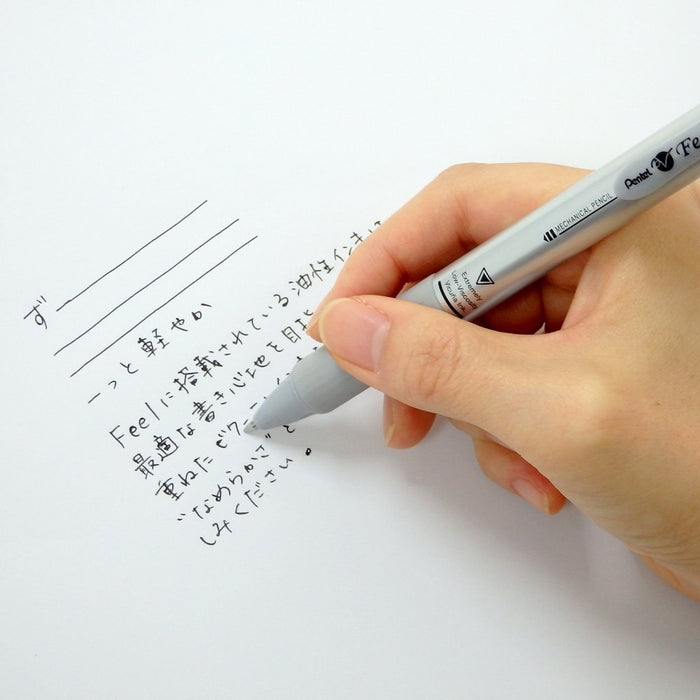 ず
ーっと軽やか
Feelに搭載されている油性インキは
最適な書き心地を目指
重ねたビク
"なめらかさ"と
しみください。
Pentel
Fe
MECHANICAL PENCIL
Extremely
Low-Viscosity
Vicuña Ink